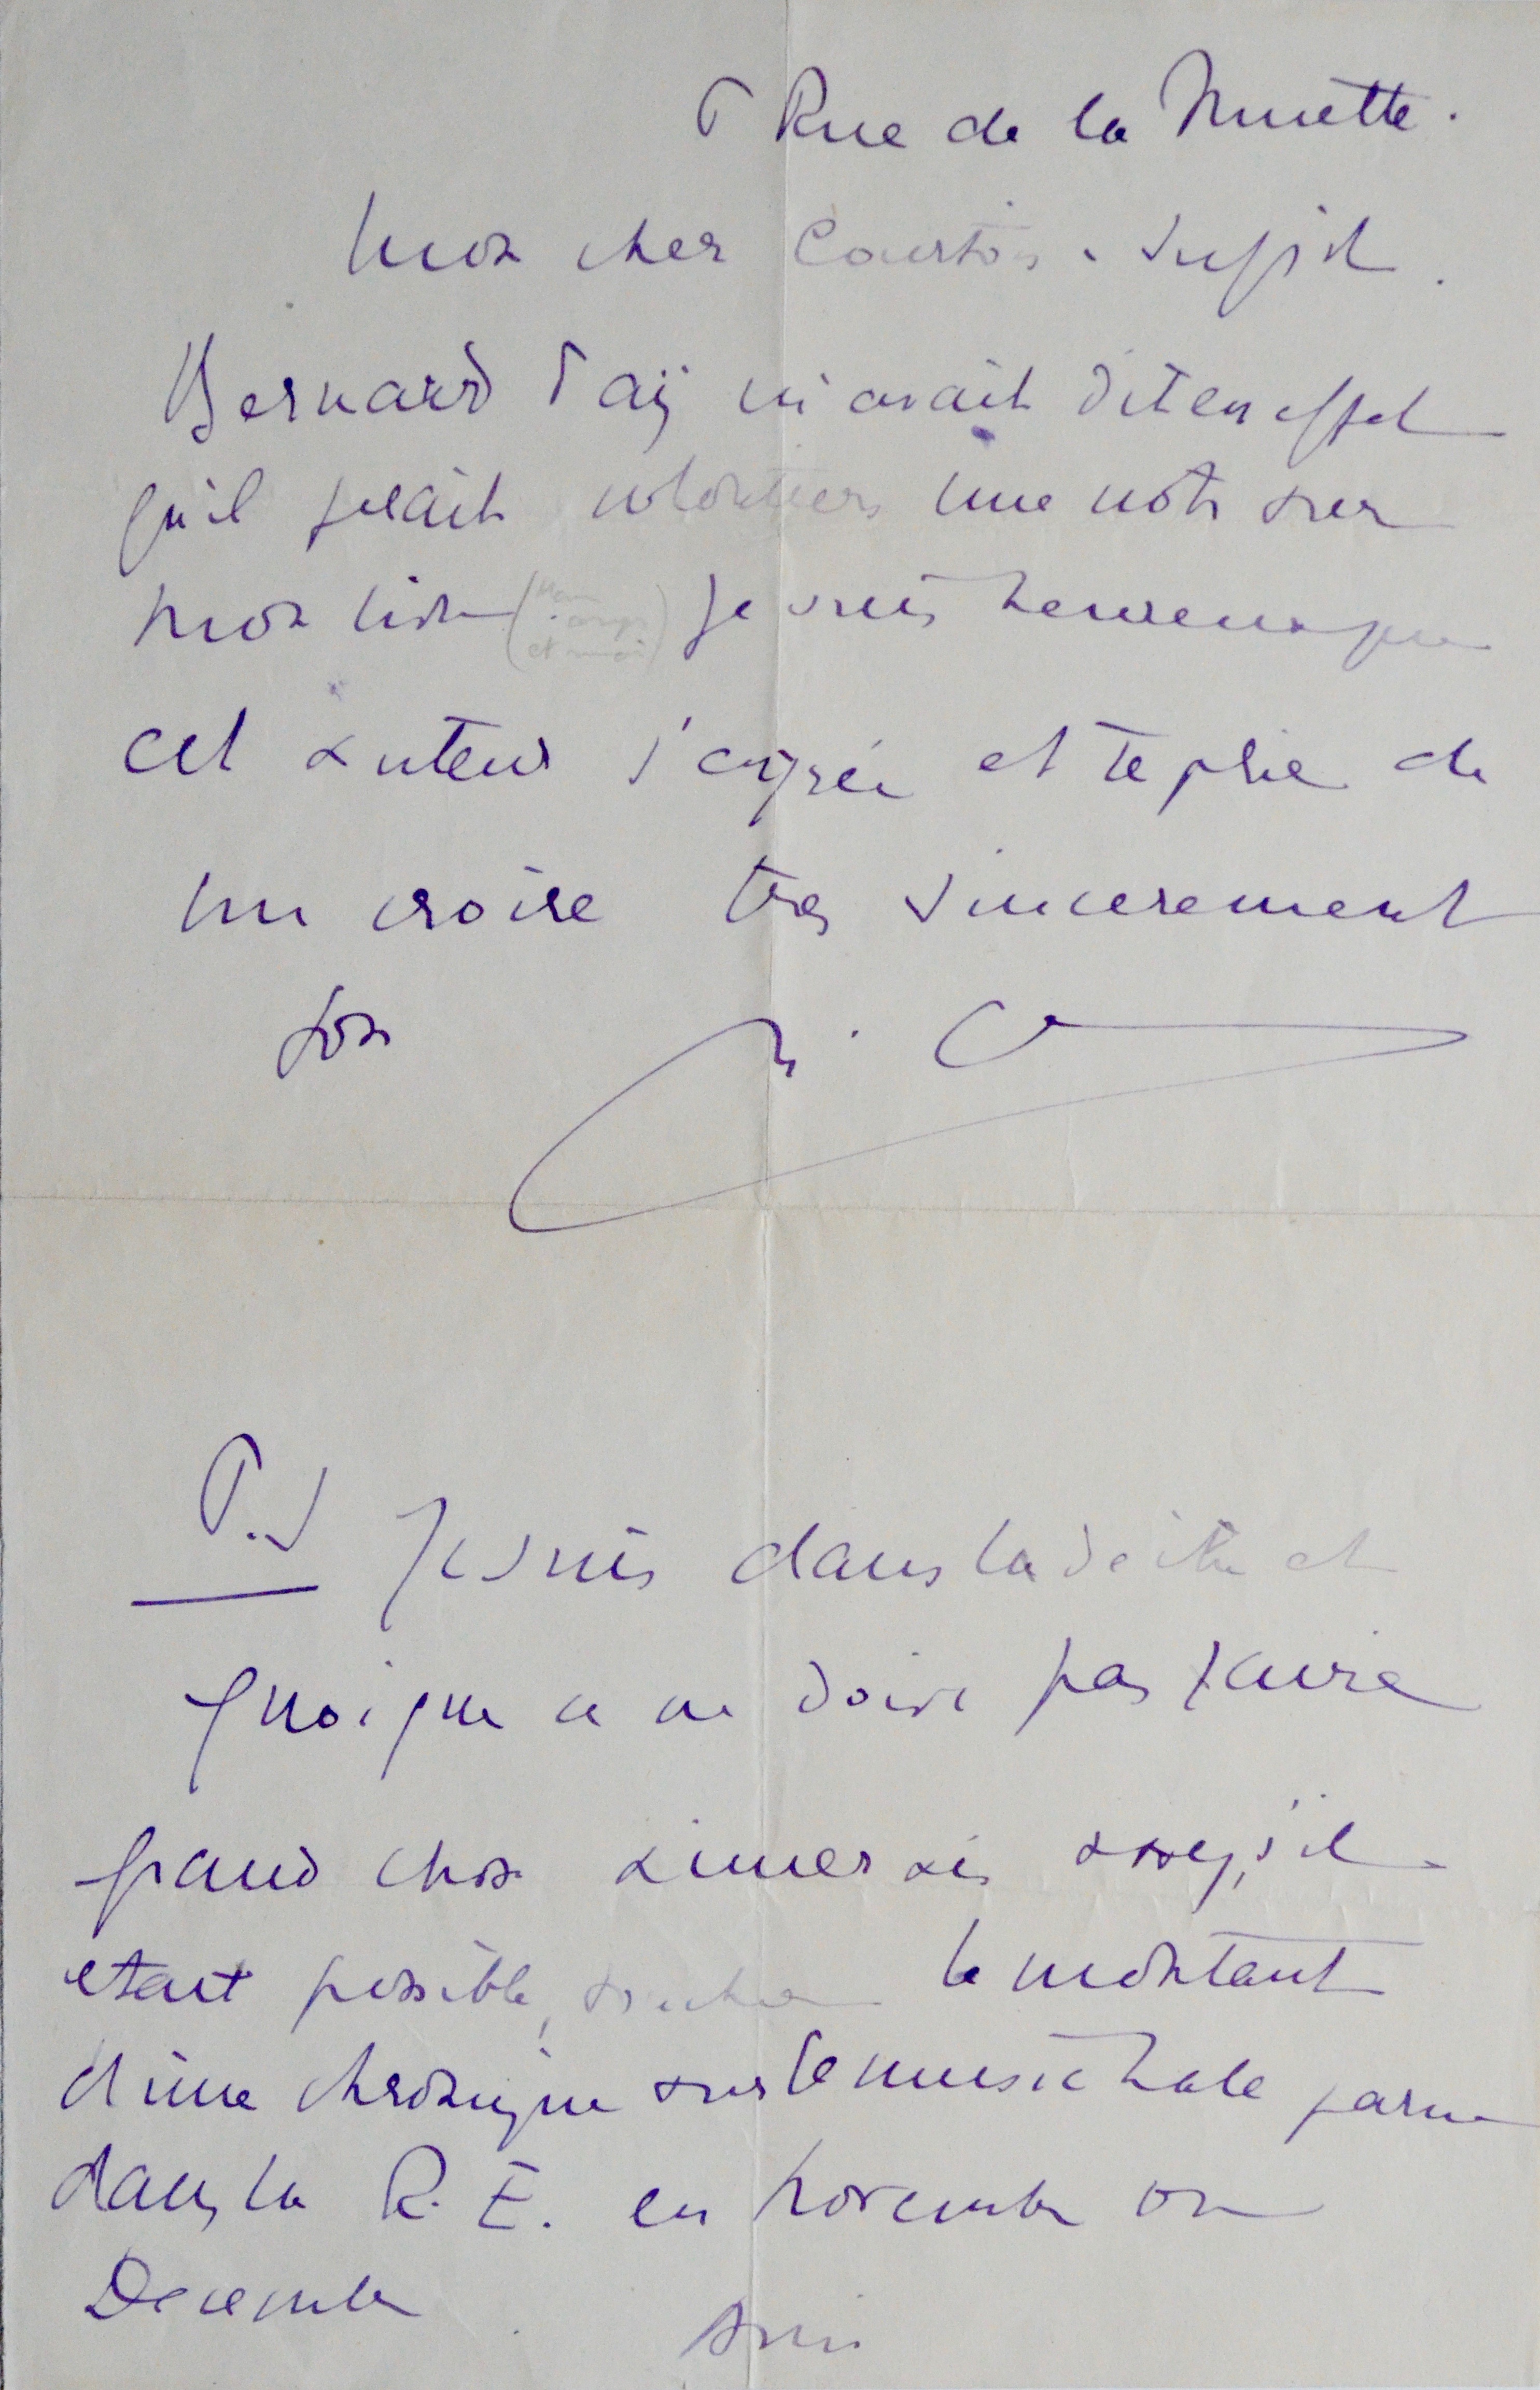 6 Rue de la Muette.
Mon cher Courtois-Suffit.
Bernard Faÿ m'avait dit en effet
qu'il ferait volontiers une note sur
mon livre (Mon corps et moi) Je suis heureux que
cet auteur t'agrée et te prie de
me croire tres sincerement
ton
R. C
P.S Je suis dans la dèche et
quoique ce ne doive pas faire
grand chose aimerais assez, s'il
etait possible, toucher le montant
d'une chronique sur le music hall parue
dans la R. E. en novembre ou
Decembre
Ami